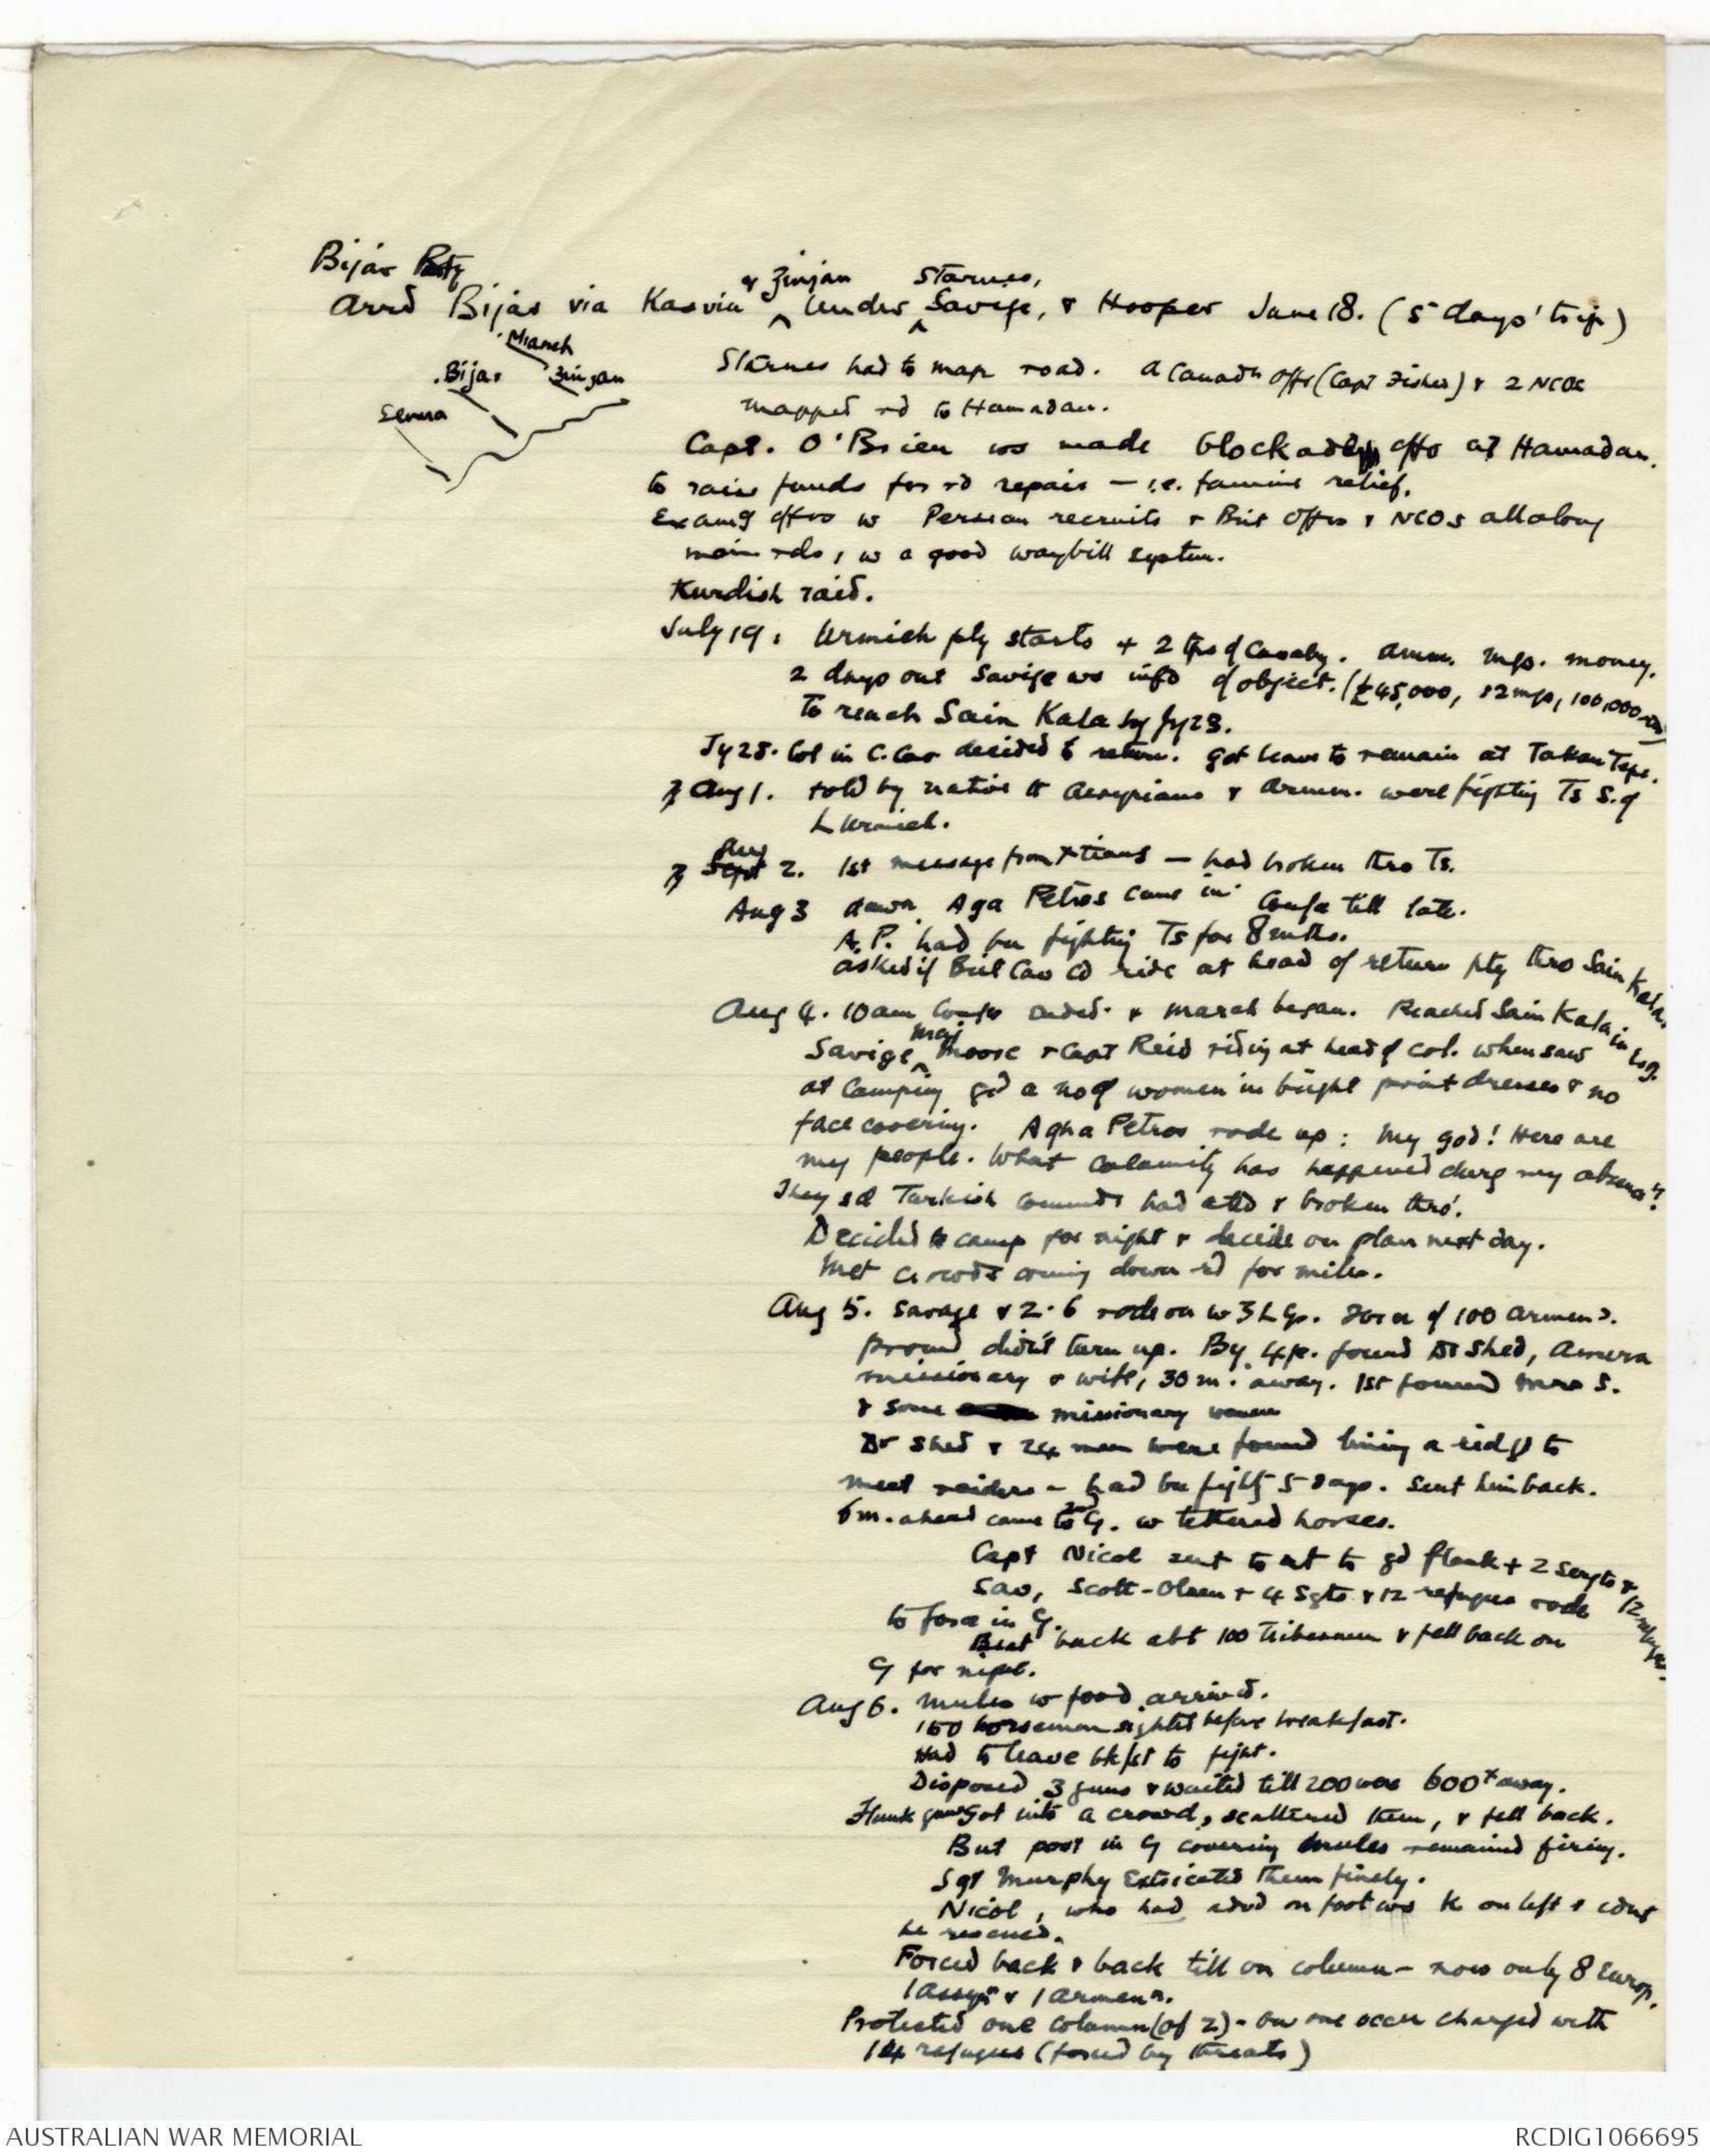 Bijar Party
& Zinjan Starnes,
Arrd Bijar via Kasvin ^ under ^ Savige, & Hooper June 18. (5 days' trip)
Mianeh
.Bijar Zinjan
Senna
Starnes had to map road. A Canadn offr (Capt Fisher) & 2 NCOs
mapped rd to Hamadan.
Capt. O'Brien ws made blockade offr at Hamadan.
to raise funds for rd repair - i.e. famine relief.
Examg offrs w Persian recruits & Brit offrs & NCOs all along
main rds, w a good waybill system.
Kurdish raid.
July 19, Urmieh pty starts + 2 tps of Cavalry. Amm. mgs. money.
2 days out Savige ws infd of object. (£45,000, 12 mgs, 100,000
To reach Sain Kala by Jy 23.
Jy 28. Col in C. Cav decided to return. Got leave to remain at Takan Tepe.
Aug 1. told by native tt Assyrians & Armen. were fighting Ts S. of
L Urmieh.
Aug
Sept 2. 1st message from Xtians - had broken thro Ts.
Aug 3 dawn Aga Petros came in. Confce till late.
A.P. had bn fighting Ts for 8 mths.
asked if Brit Cav cd ride at head of return pty thro Sain Kala.
Aug 4. 10 am Confce ended. & march began. Reached Sain Kala in evg.
Savige ^ Maj Moore & Capt Reid riding at head of col. when saw
at Camping gd a no of women in bright print dresses & no
face covering. Agha Petros rode up: My god! Here are
my people. What calamity has happened durg my absence"?
They sd Turkish commdr had attd & broken thro'.
Decided to camp for night & decide on plan next day.
Met crowds coming down rd for miles.
Aug 5. Savage & 2.6 rode on w 3 L Gs. Force of 100 Armens.
promd didn't turn up. By 4 p. found Dr Shed, Amern
missionary & wife, 30 m. away. 1st found Mrs S.
& some missionary women
Dr Shed & 24 men were found lining a ridge to
meet raiders - had bn fightg 5 days. Sent him back.
6 m. ahead came to 2nd G. w tethered horses.
Capt Nicol sent to rt to gd flank + 2 sergts & 12 refugees.
Sav, Scott-Olsen + 4 Sgts & 12 refugees rode
to force in G.
Beat back abt 100 tribesmen & fell back on
G for night.
Aug 6. Mules w food arrived.
150 horsemen sighted before breakfast.
Had to leave bkfst to fight.
Disposed 3 guns & waited till 200 were 600x away.
Flank guns got into a crowd, scattered them, & fell back.
But post in G covering mules remained firing.
Sgt Murphy Extricated them finely.
Nicol, who had advd on foot ws K on left & cdnt
be rescued.
Forced back & back till on column - now only 8 Europ.
1 Assyn & 1 Armenn.
Protected one column (of 2) - on one occn charged with
14 refugees (forced by threats)
AUSTRALIAN WAR MEMORIAL
RCDIG1066695